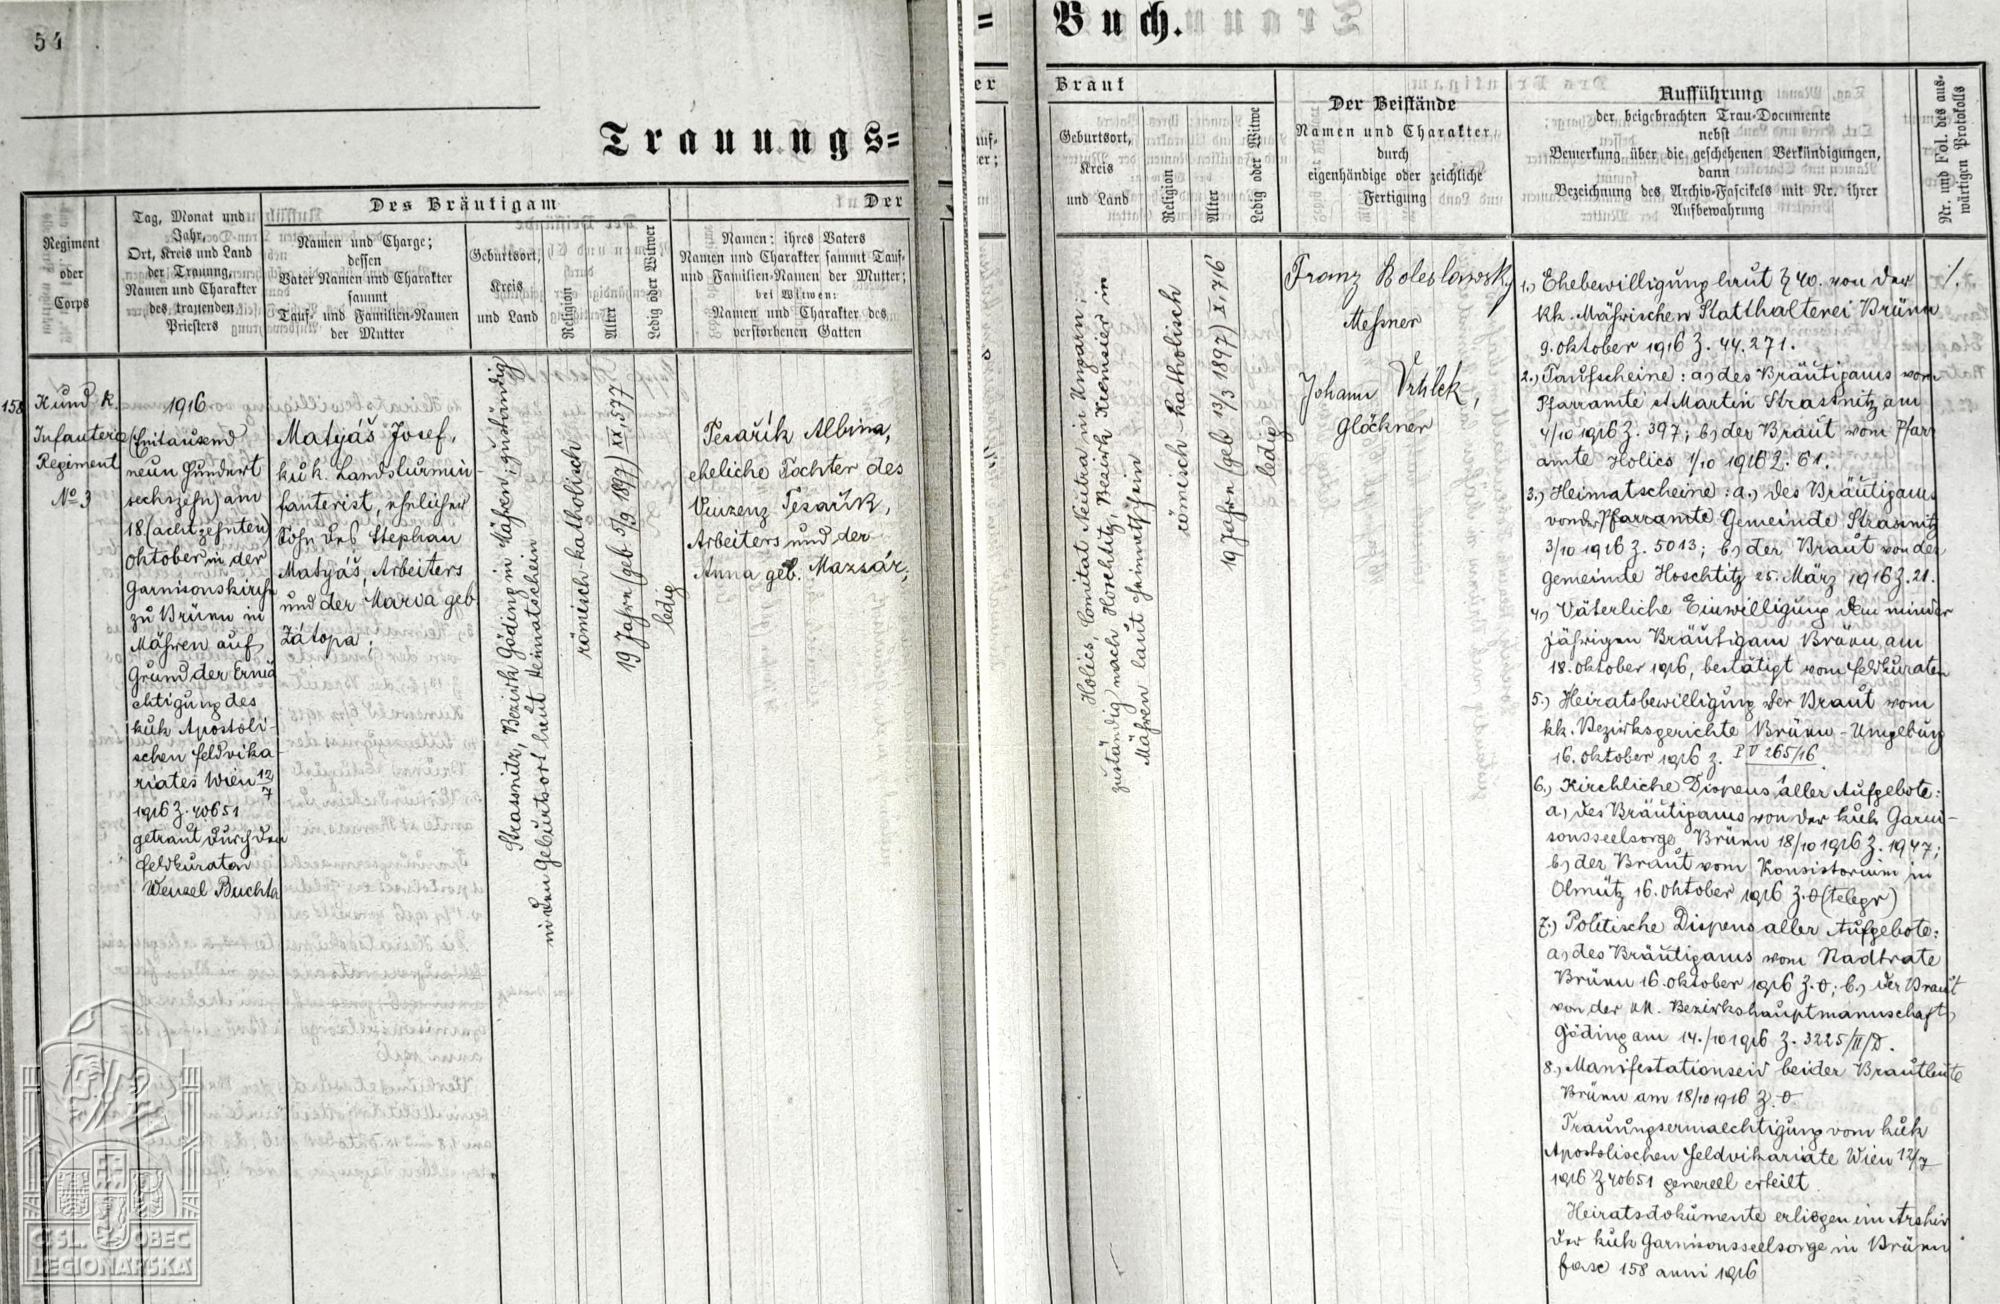 54
Trauungs=
= Buch.
Regiment
oder
Corps
Tag, Monat und
Jahr,
Ort, Kreis und Land
der Trauung,
Namen und Charakter
des trauenden
Priesters
Des Bräutigam
Namen und Charge;
dessen
Vater Namen und Charakter
sammt
Tauf- und Familien-Namen
der Mutter
Geburtsort,
Kreis
und Land
Religion
Alter
Ledig oder Witwer
Der
Namen; ihres Vaters
Namen und Charakter sammt Tauf-
und Familien-Namen der Mutter;
bei Witwen:
Namen und Charakter des
verstorbenen Gatten
Braut
Geburtsort,
Kreis
und Land
Religion
Alter
Ledig oder Witwe
Der Beistände
Namen und Charakter
durch
eigenhändige oder zeichliche
Fertigung
Aufführung
der beigebrachten Trau-Documente
nebst
Bemerkung über die geschehenen Verkündigungen,
dann
Bezeichnung des Archiv-Fascikels mit Nr. ihrer
Aufbewahrung
Nr. und Fol. des aus-
wärtigen Protokolls
158
K und K.
Infanterie
Regiment
No 3
1916
(Eintausend
neun hundert
sechzehn) am
18. (achtzehnten)
Oktober in der
Garnisonskirche
zu Brünn in
Mähren auf
Grund der Ermä
chtigung des
kuk Apostoli-
schen Feldvika
riates Wien 12/7
1916 Z. 40651
getraut durch den
Feldkuraten
Wenzel Buchta
Matyáš Josef,
kuk. Landsturmin-
fanterist, ehelicher
Sohn des Stephan
Matyáš, Arbeiters
und der Maria geb.
Zátopa;
Strassnitz, Bezirk Göding in Mähren; zuständig
in den Geburtsort laut Heimatschein
römisch-katholisch
19 Jahre (geb 5/9 1897)
ledig
Tesařík Albina,
eheliche Tochter des
Vinzenz Tesařík,
Arbeiters und der
Anna geb. Mazsár;
Holics, Comitat Neutra in Ungarn;
zuständig nach Hoschtitz, Bezirk Kremsier in
Mähren laut Heimatschein
römisch-katholisch
19 Jahre (geb 13/3 1897)
ledig
Franz Boleslawsky
Meßner
Johann Vrtílek,
Glöckner
1.) Ehebewilligung laut § 40. von der
kk. Mährischen Statthalterei Brünn
9. Oktober 1916 Z. 44.271.
2.) Taufscheine: a) des Bräutigams vom
Pfarramte St Martin Strassnitz am
4/10 1916 Z. 397; b) der Braut vom Pfarr
amte Holics 1/10 1916 Z. 61.
3.) Heimatscheine: a.) des Bräutigams
von der Pfarramte Gemeinde Strassnitz
3/10 1916 Z. 5013; b) der Braut von der
Gemeinde Hoschtitz 25. März 1916 Z. 21.
4.) Väterliche Einwilligung dem minder
jährigen Bräutigam Brünn am
18. Oktober 1916, bestätigt vom Feldkuraten
5.) Heiratsbewilligung der Braut vom
kk. Bezirksgerichte Brünn-Umgebung
16. Oktober 1916 Z. P V 265/16.
6.) Kirchliche Dispens aller Aufgebote:
a) des Bräutigams von der kuk Garni-
sonsseelsorge Brünn 18/10 1916 Z. 1947;
b) der Braut vom Konsistorium in
Olmütz 16. Oktober 1916 Z. 0 (telegr)
7.) Politische Dispens aller Aufgebote:
a) des Bräutigams vom Stadtrate
Brünn 16. Oktober 1916 Z. 0; b.) der Braut
von der kk. Bezirkshauptmannschaft
Göding am 14./10 1916 Z. 3225/II/D.
8.) Manifestationseid beider Brautleute
Brünn am 18/10 1916 Z. 0.
Trauungsermaechtigung vom kuk
Apostolischen Feldvikariate Wien 12/7
1916 Z 40651 generell erteilt.
Heiratsdokumente erliegen im Archiv
der kuk Garnisonsseelsorge in Brünn
fasc 158 anni 1916
./.
ČSL. OBEC
LEGIONÁŘSKÁ